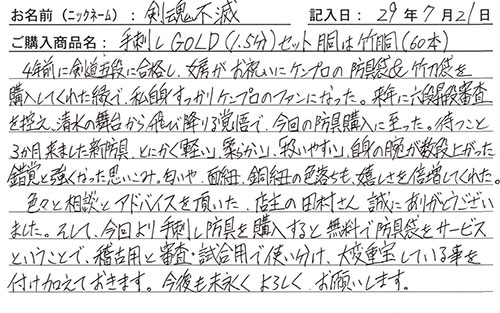 お名前（ニックネーム）：剣魂不滅 記入日：29年7月21日
ご購入商品名：手刺しGOLD(1.5分)セット胴は竹胴(60本)
4年前に剣道五段に合格し、女房がお祝いにケンプロの防具袋&竹刀袋を
購入してくれた縁で、私自身すっかりケンプロのファンになった。来年に六段昇段審査
を控え、清水の舞台から飛び降りる覚悟で、今回の防具購入に至った。待つこと
3か月来ました新防具、とにかく「軽い」、柔らかい、「扱いやすい」、自身の腕が数段上がった
錯覚と強くなった思いこみ。匂いや、面紐、胴紐の色落ちも、嬉しさを倍増してくれた。
色々と相談とアドバイスを頂いた、店主の田村さん誠にありがとうござい
ました。そして、今回より手刺し防具を購入すると無料で防具袋をサービス
ということで、稽古用と審査・試合用で使い分け、大変重宝している事を
付け加えておきます。今後も末永くよろしく、お願いします。